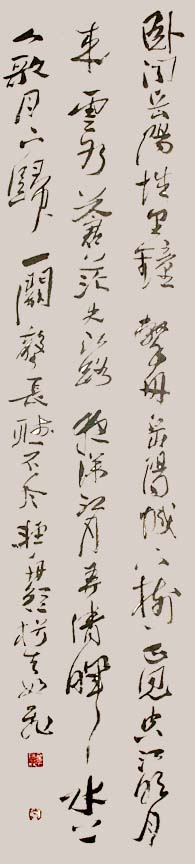 卧聞岳陽城里鐘繫舟岳陽城下樹正見空江明月
來雲水蒼茫失江路夜深江月弄清暉水上
人歌月下歸一闋聲長聽不盡輕舟短楫去如飛